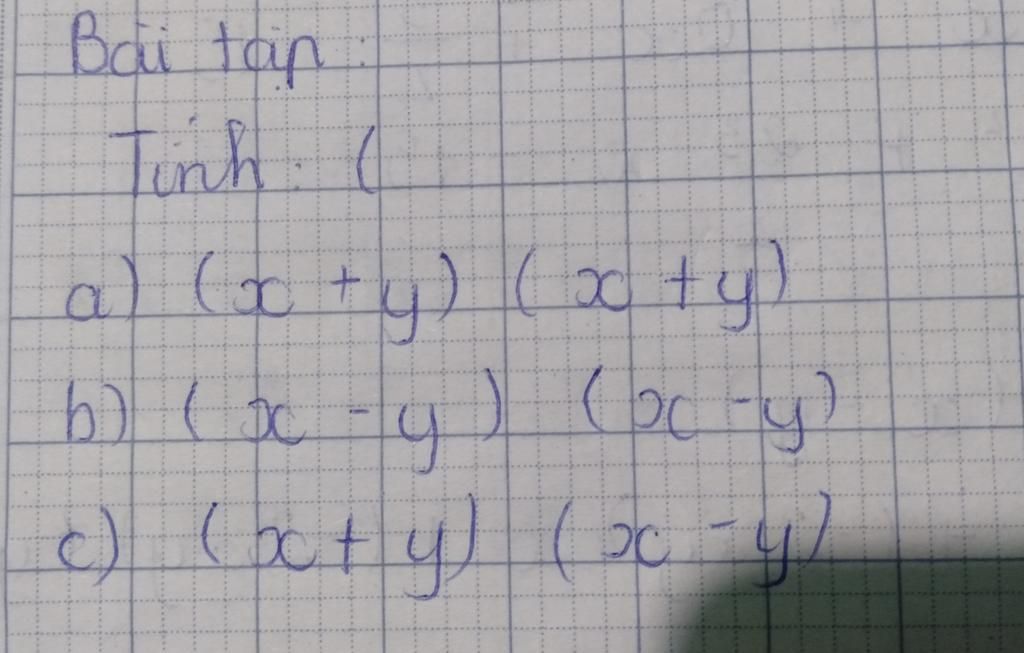 Bài tập:
Tính: (
a) (x + y) (x + y)
b) (x - y) (x - y)
c) (x + y) (x - y)